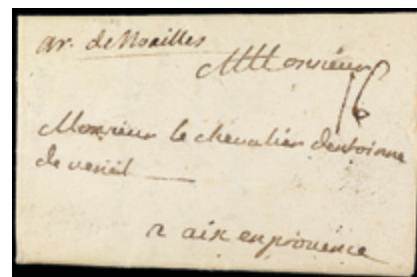 ar. de Noailles
Monsieur
16
Monsieur le chevalier dantoinne
de venel
a aix en provence